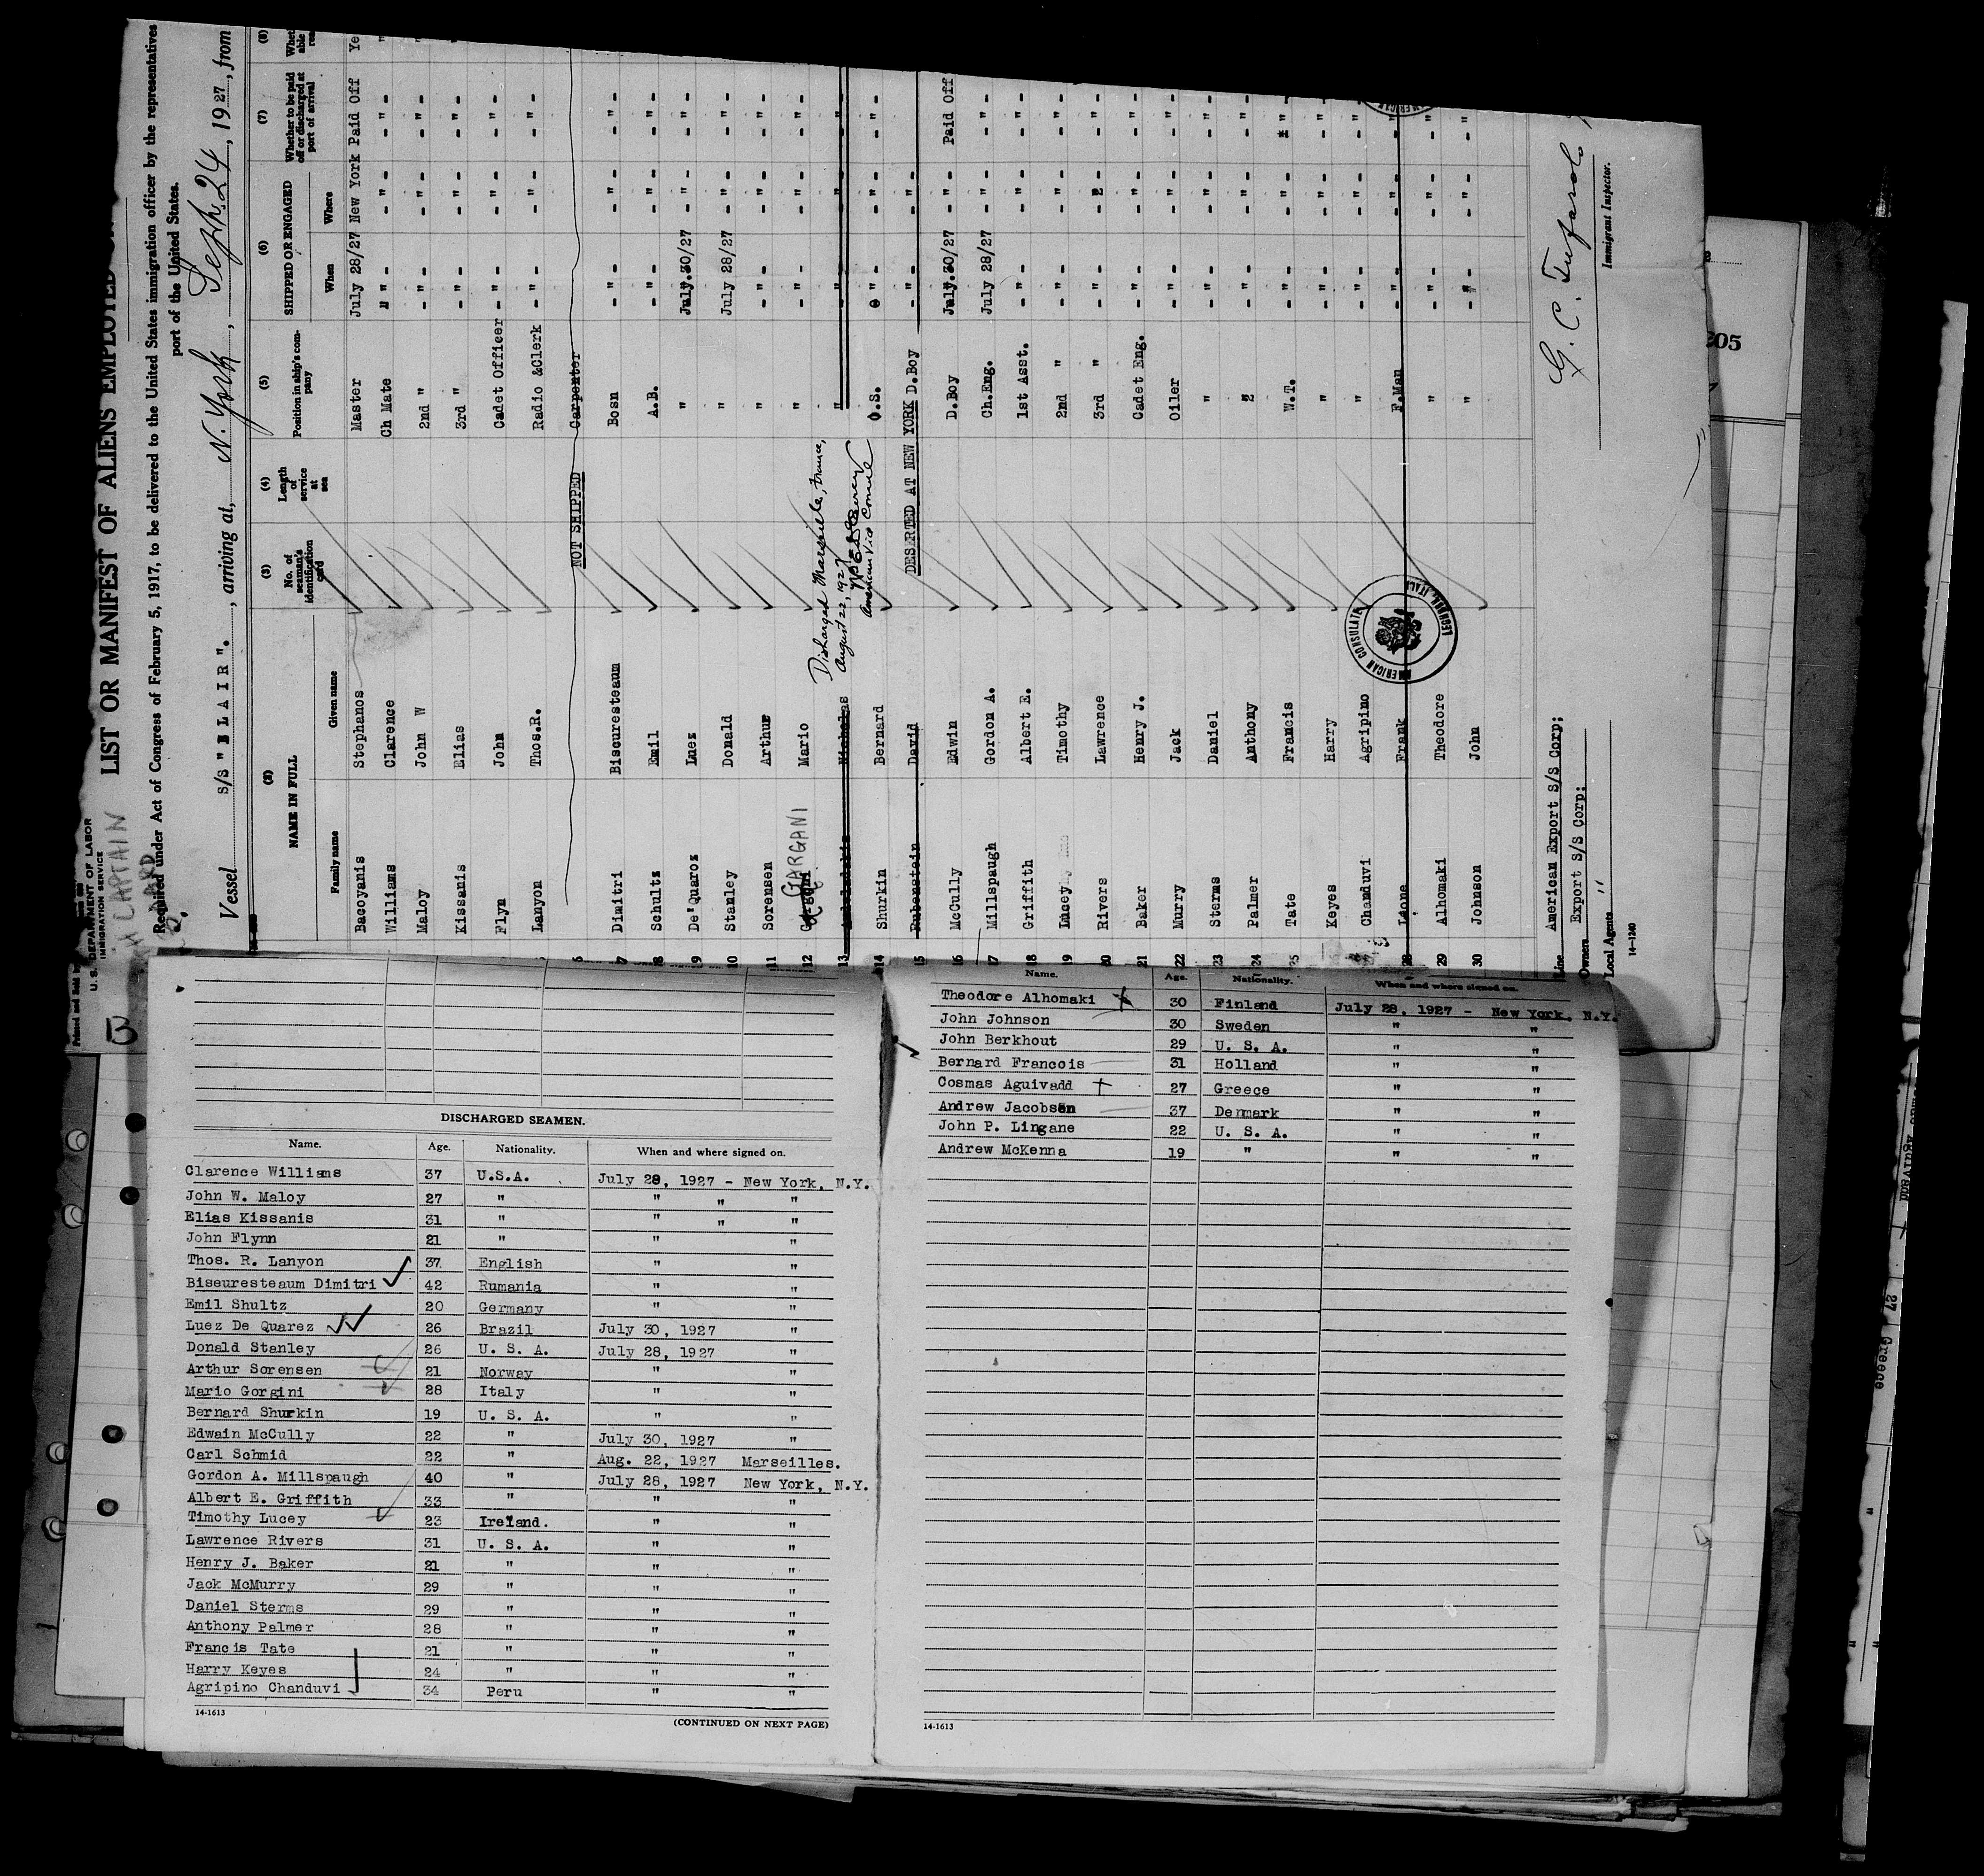 U. S. DEPARTMENT OF LABOR
IMMIGRATION SERVICE
LIST OR MANIFEST OF ALIENS EMPLOYED
Required under Act of Congress of February 5, 1917, to be delivered to the United States immigration officer by the representatives
port of the United States.
Vessel S/S "BLAIR". , arriving at, N. York , Sept. 24 , 1927 , from
(2) (3) (4) (5) (6) (7) (8)
NAME IN FULL
Family name Given name
No. of seaman's identification card
Length of service at sea
Position in ship's company
SHIPPED OR ENGAGED
When Where
Whether to be paid off or discharged at port of arrival
Bacoyanis Stephanos Master July 28/27 New York Paid Off Ye
Williams Clarence Ch Mate " - " - - " -
Maloy John W 2nd " - " - - " - - " -
Kissanis Elias 3rd " - " - - " - - " -
Flyn John Cadet Officer - " - - " - - " -
Lanyon Thos.R. Radio &Clerk - " - - " - - " -
6 NOT SHIPPED Carpenter
7 Dimitri Biscuresteaum Bosn - " - - " - - " -
8 Schultz Emil A.B. - " - - " - - " -
9 De'Quaroz Luez " July.30/27 - " - - " -
10 Stanley Donald " July 28/27 - " - - " -
11 Sorensen Arthur " - " - - " - - " -
12 GARGANI Mario " - " - - " - - " -
Discharged Marseille, France,
August 22, 1927
American Vice Consul
13 Nicholas " - " - - " - - " -
14 Shurkin Bernard O.S. " - - " - - " -
Rubenstein David DESERTED AT NEW YORK D.Boy - " - - " -
16 McCully Edwin D.Boy July.30/27 - " - Paid Off
17 Millspaugh Gordon A. Ch.Eng. July 28/27 - " - - " -
18 Griffith Albert E. 1st Asst. - " - - " - - " -
19 Lucey Timothy 2nd " - " - - " - - " -
20 Rivers Lawrence 3rd " - " - - - " -
21 Baker Henry J. Cadet Eng. - " - - " - - " -
22 Murry Jack Oiler - " - - " - - " -
23 Sterms Daniel " - " - - " - - " -
24 Palmer Anthony - " - - " - - " -
25 Tate Francis W.T. - " - - " - "
Keyes Harry " - " - - " - - " -
Chanduvi Agripino " - " - - " - - " -
28 Lione Frank F.Man - " - - " - - " -
29 Alhomaki Theodore " - " - - " - - " -
30 Johnson John " - " - - " - - " -
AMERICAN CONSULATE
LEGHORN, ITALY
Line American Export S/S Corp;
Owners Export S/S Corp;
Local Agents "
14-1240
Immigrant Inspector.
205
DISCHARGED SEAMEN.
Name. Age. Nationality. When and where signed on.
Clarence Williams 37 U.S.A. July 28, 1927 - New York, N.Y.
John W. Maloy 27 " " " "
Elias Kissanis 31 " " " "
John Flynn 21 " " "
Thos. R. Lanyon 37 English " "
Biseuresteaum Dimitri 42 Rumania " "
Emil Shultz 20 Germany " "
Luez De Quarez 26 Brazil July 30, 1927 "
Donald Stanley 26 U. S. A. July 28, 1927 "
Arthur Sorensen 21 Norway " "
Mario Gorgini 28 Italy " "
Bernard Shurkin 19 U. S. A. " "
Edwain McCully 22 " July 30, 1927 "
Carl Schmid 22 " Aug. 22, 1927 Marseilles.
Gordon A. Millspaugh 40 " July 28, 1927 New York, N.Y.
Albert E. Griffith 33 " " "
Timothy Lucey 23 Ireland. " "
Lawrence Rivers 31 U. S. A. " "
Henry J. Baker 21 " " "
Jack McMurry 29 " " "
Daniel Sterms 29 " " "
Anthony Palmer 28 " " "
Francis Tate 21 " " "
Harry Keyes 24 " " "
Agripino Chanduvi 34 Peru " "
14-1613
(CONTINUED ON NEXT PAGE)
Name. Age. Nationality. When and where signed on.
Theodore Alhomaki 30 Finland July 28, 1927 - New York, N.Y.
John Johnson 30 Sweden " "
John Berkhout 29 U. S. A. " "
Bernard Francois 31 Holland " "
Cosmas Aguivadd 27 Greece " "
Andrew Jacobsen 37 Denmark " "
John P. Lingane 22 U. S. A. " "
Andrew McKenna 19 " " "
14-1613
27 Greece